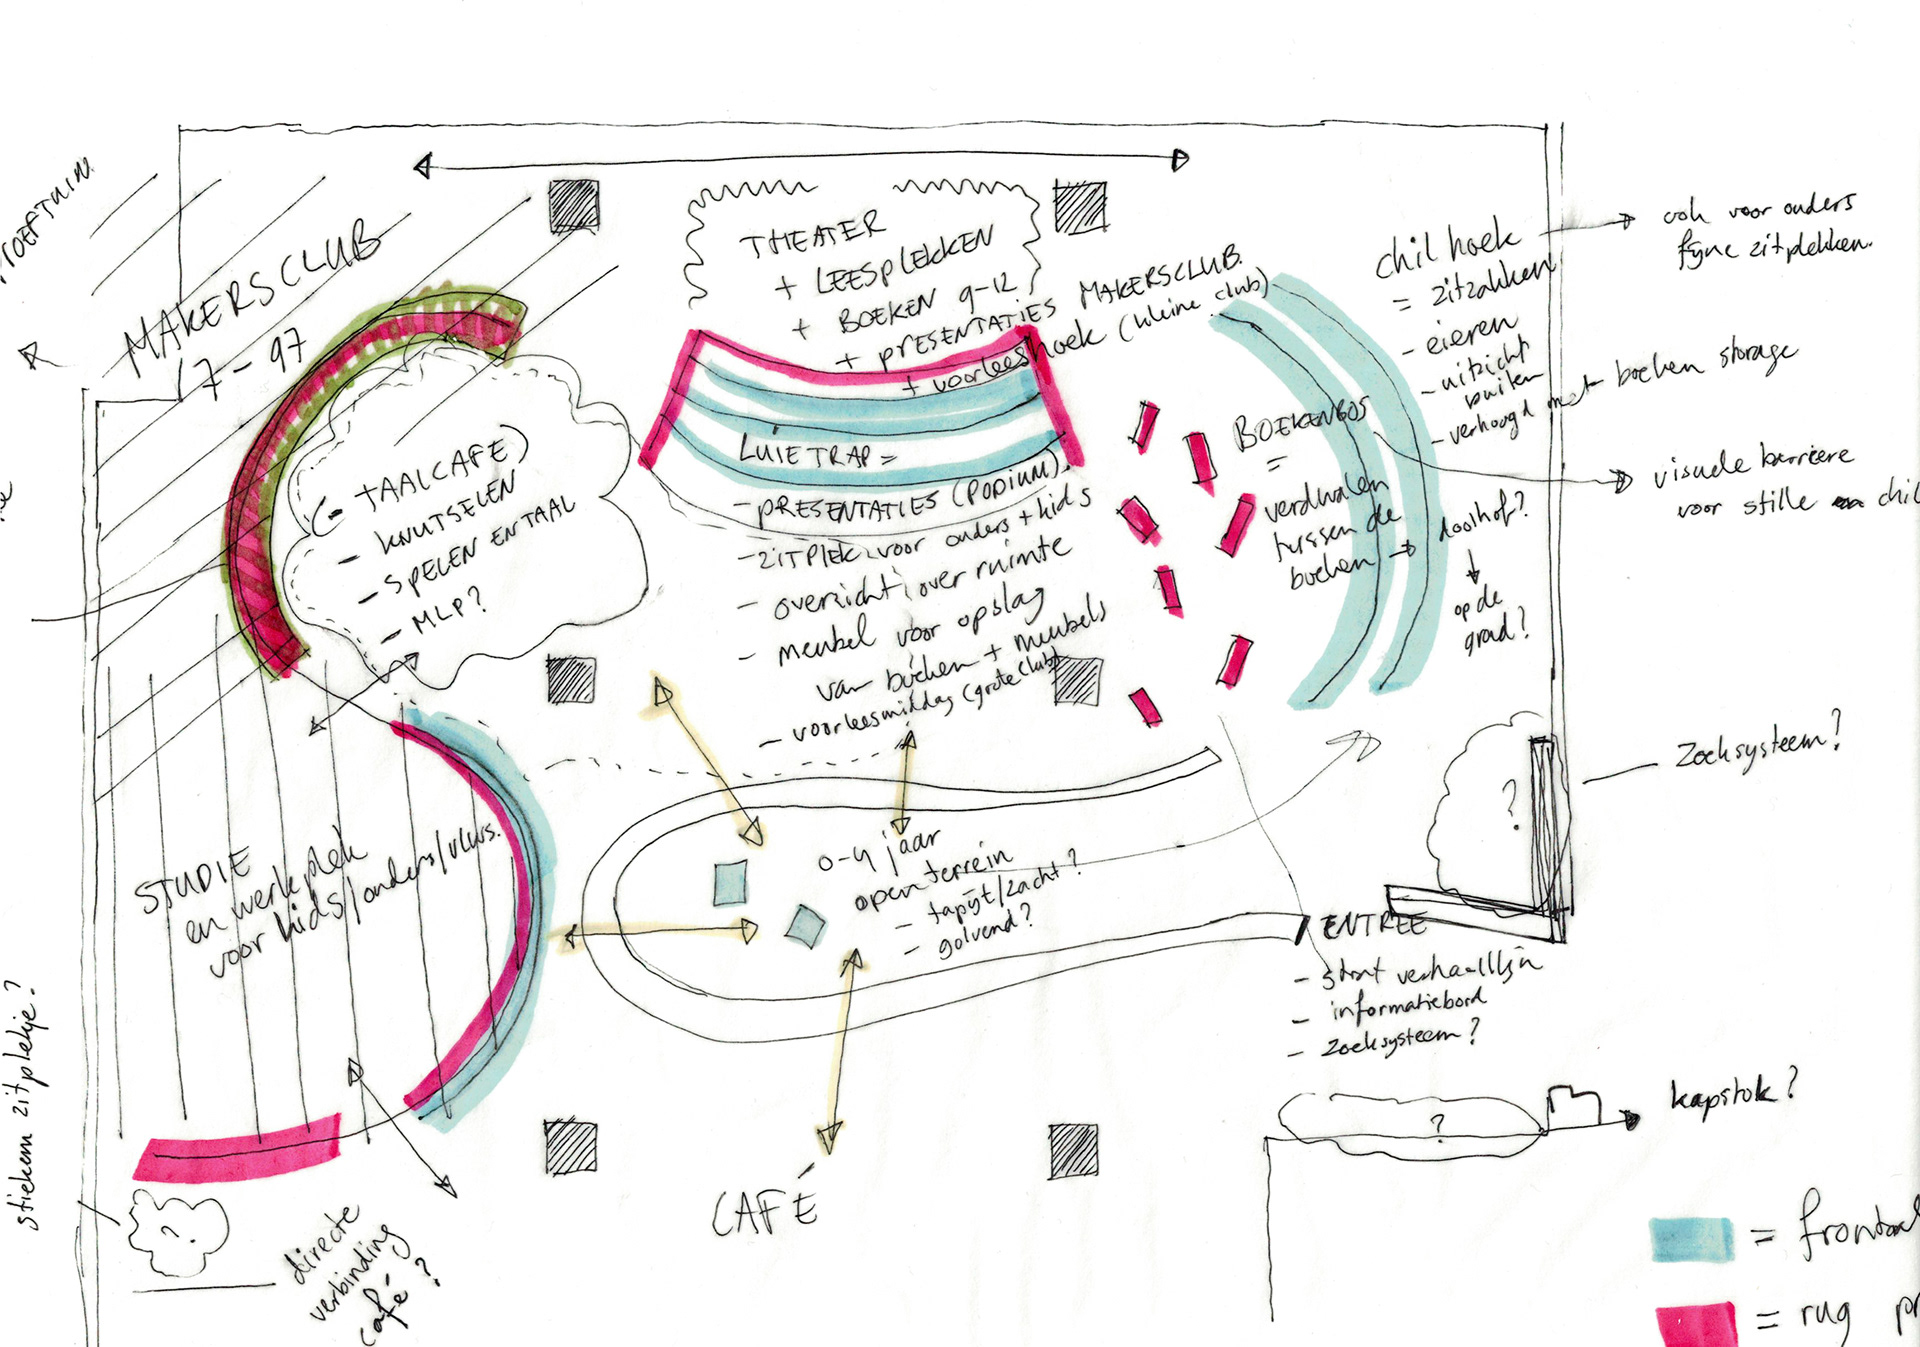 MAKERSCLUB
7-97
THEATER
+ LEESPLEKKEN
+ BOEKEN 9-12
+ PRESENTATIES MAKERSCLUB.
+ voorleeshoek (kleine club)
chill hoek
= zitzakken
- eieren
- uitzicht
buiten
- verhoogd met boeken storage
ook voor ouders
fijne zitplekken.
BOEKENBOS
=
verdwalen
tussen de
boeken → doolhof?
op de
grond?
visuele barrière
voor stille chil
(- TAALCAFE)
- KNUTSELEN
- SPELEN EN TAAL
- MLP?
LUIE TRAP =
- PRESENTATIES (PODIUM).
- ZITPLEK voor ouders + kids
- overzicht over ruimte
- meubel voor opslag
van boeken + meubels
- voorleesmiddag (grote club)
Zoeksysteem?
?
STUDIE
en werkplek
voor kids/ouders/vlws.
0-4 jaar
open terrein
- tapijt/zacht?
- golvend?
ENTREE
- start verhaallijn
- informatiebord
- zoeksysteem?
kapstok?
?
stiekem zitplekje?
?
directe
verbinding
café?
CAFÉ
= frontaal
= rug